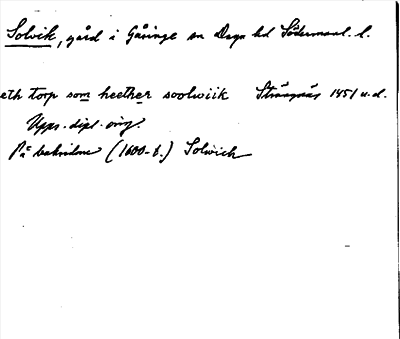 Solvik, gård i Gåsinge sn Daga hd Södermanl. l.
eth torp som heether soolwiik Strängnäs 1451 u.d.
Upps. dipl. orig.
På baksidan (1600-t.) Solwich